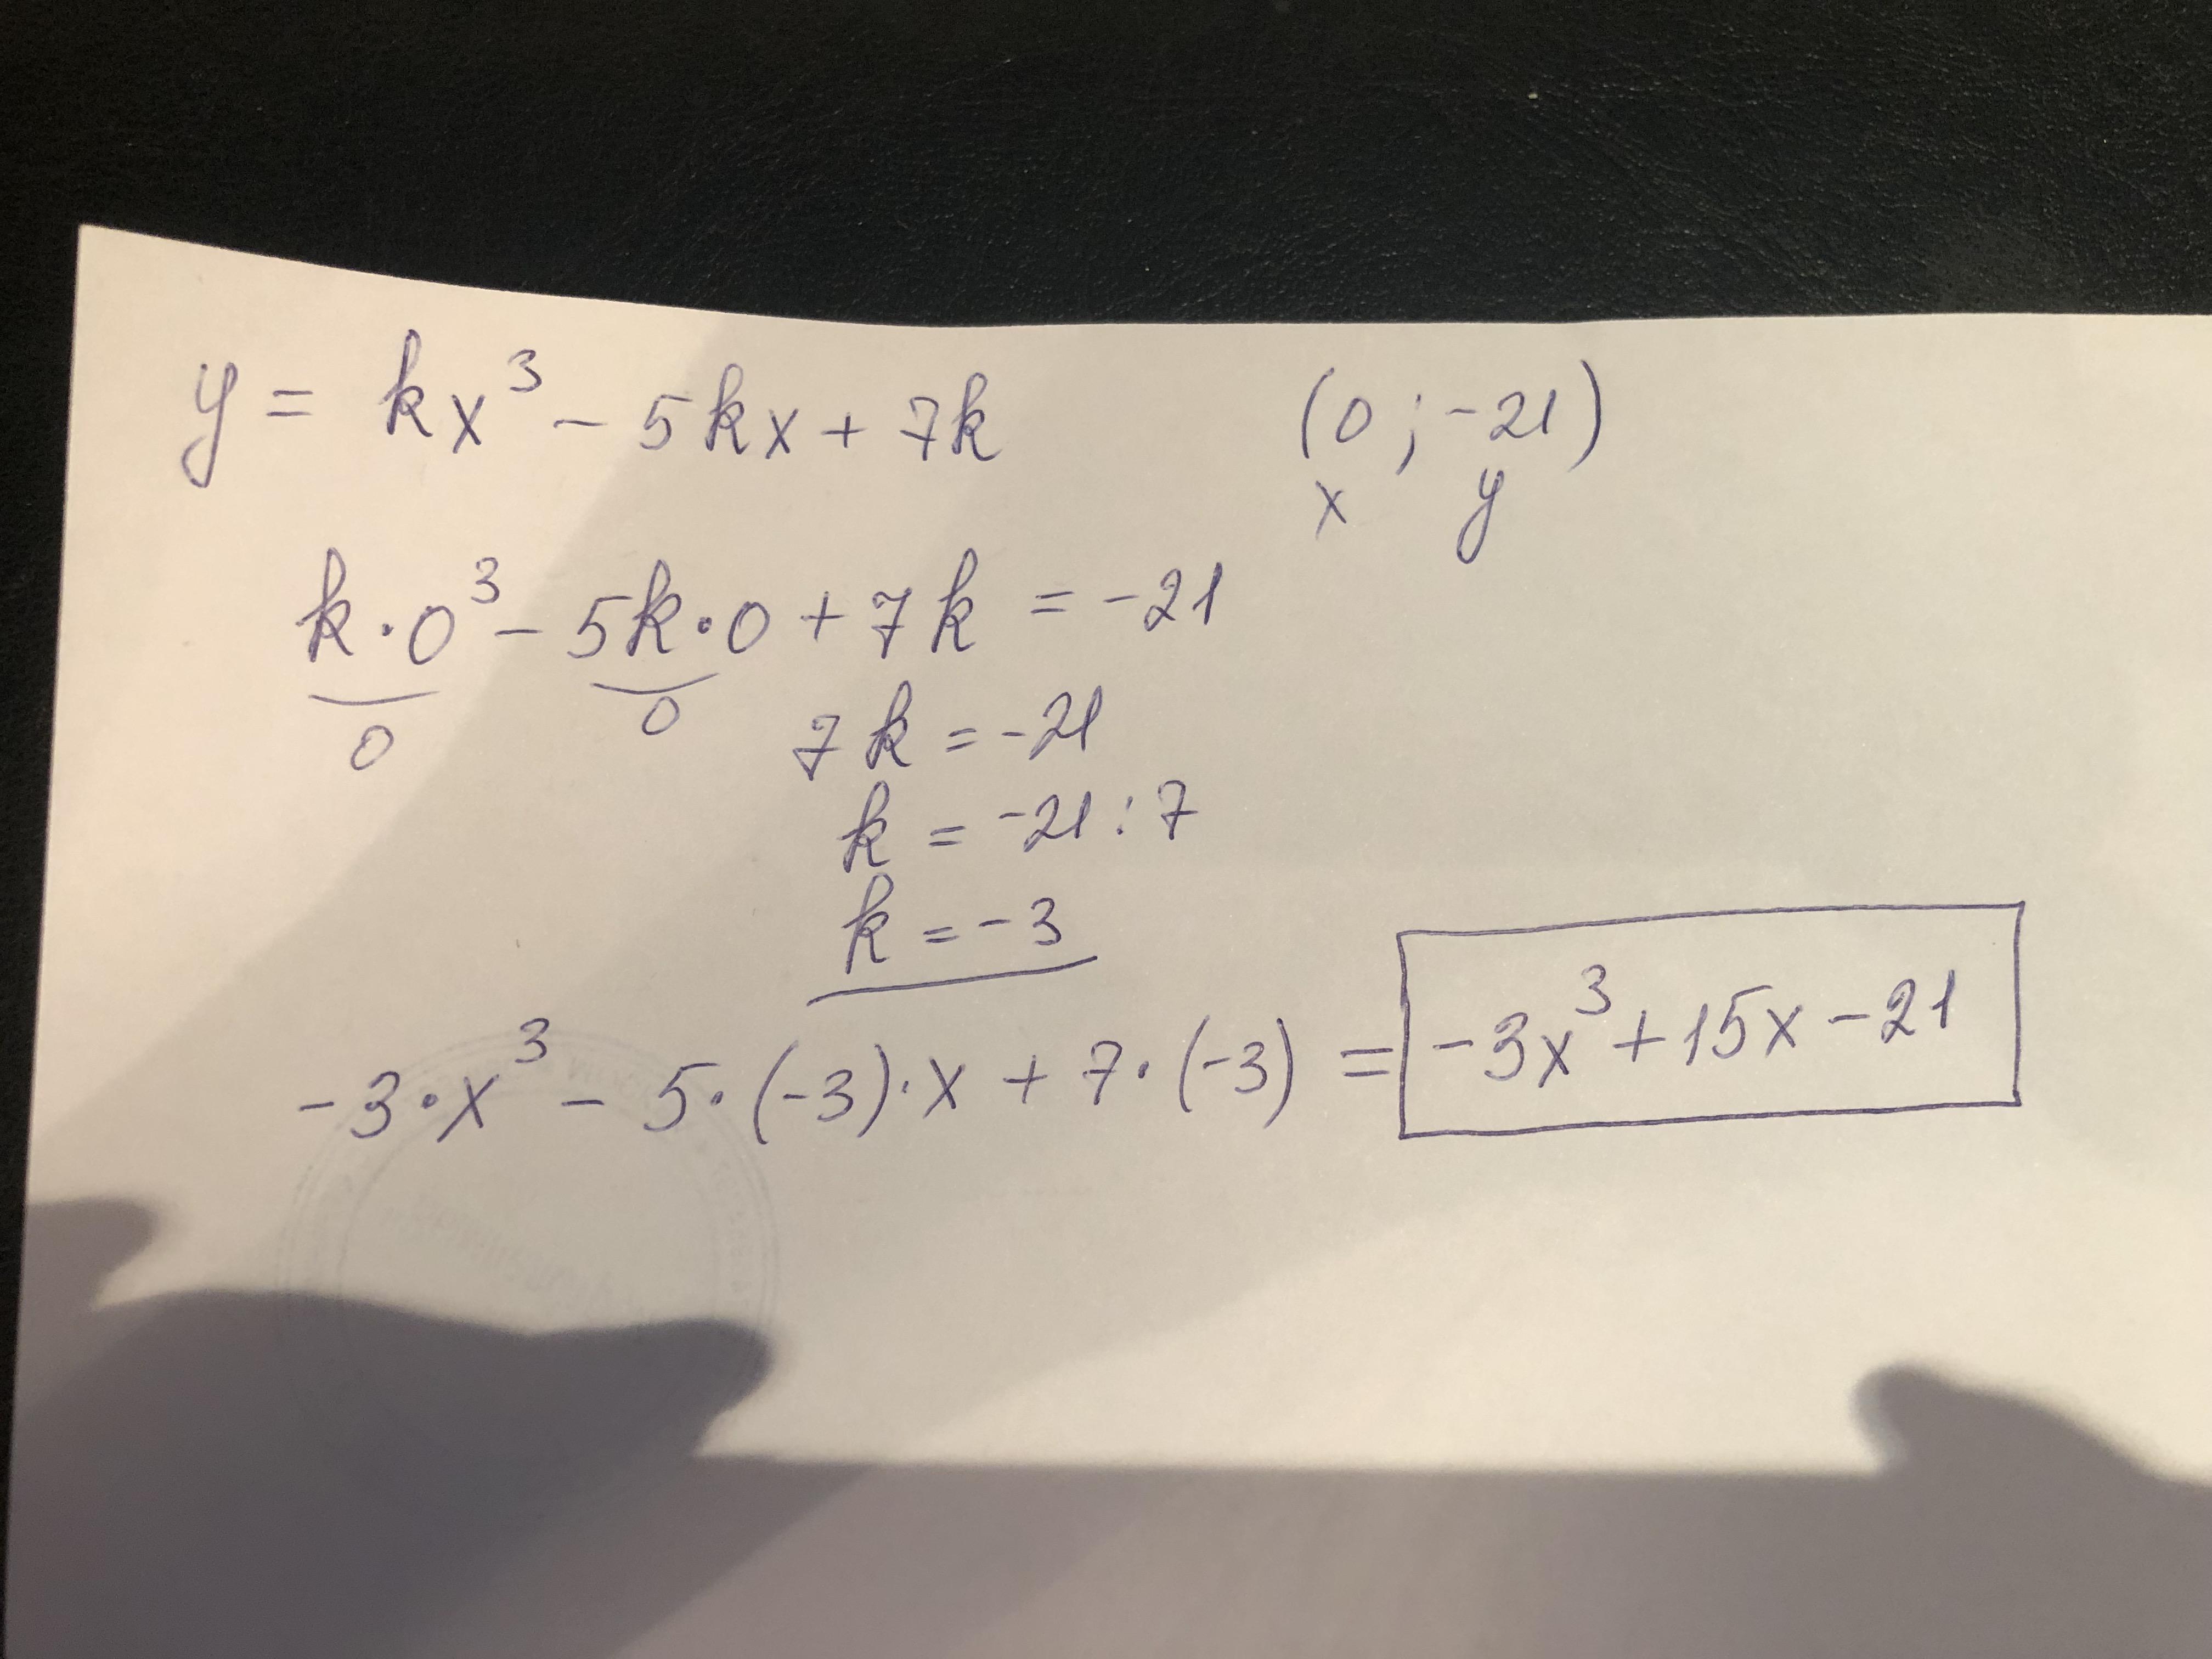 y = kx³ - 5kx + 7k (0 ; -21)
x y
k·0³ - 5k·0 + 7k = -21
0 0
7k = -21
k = -21 : 7
k = -3
-3·x³ - 5·(-3)·x + 7·(-3) = -3x³ + 15x - 21